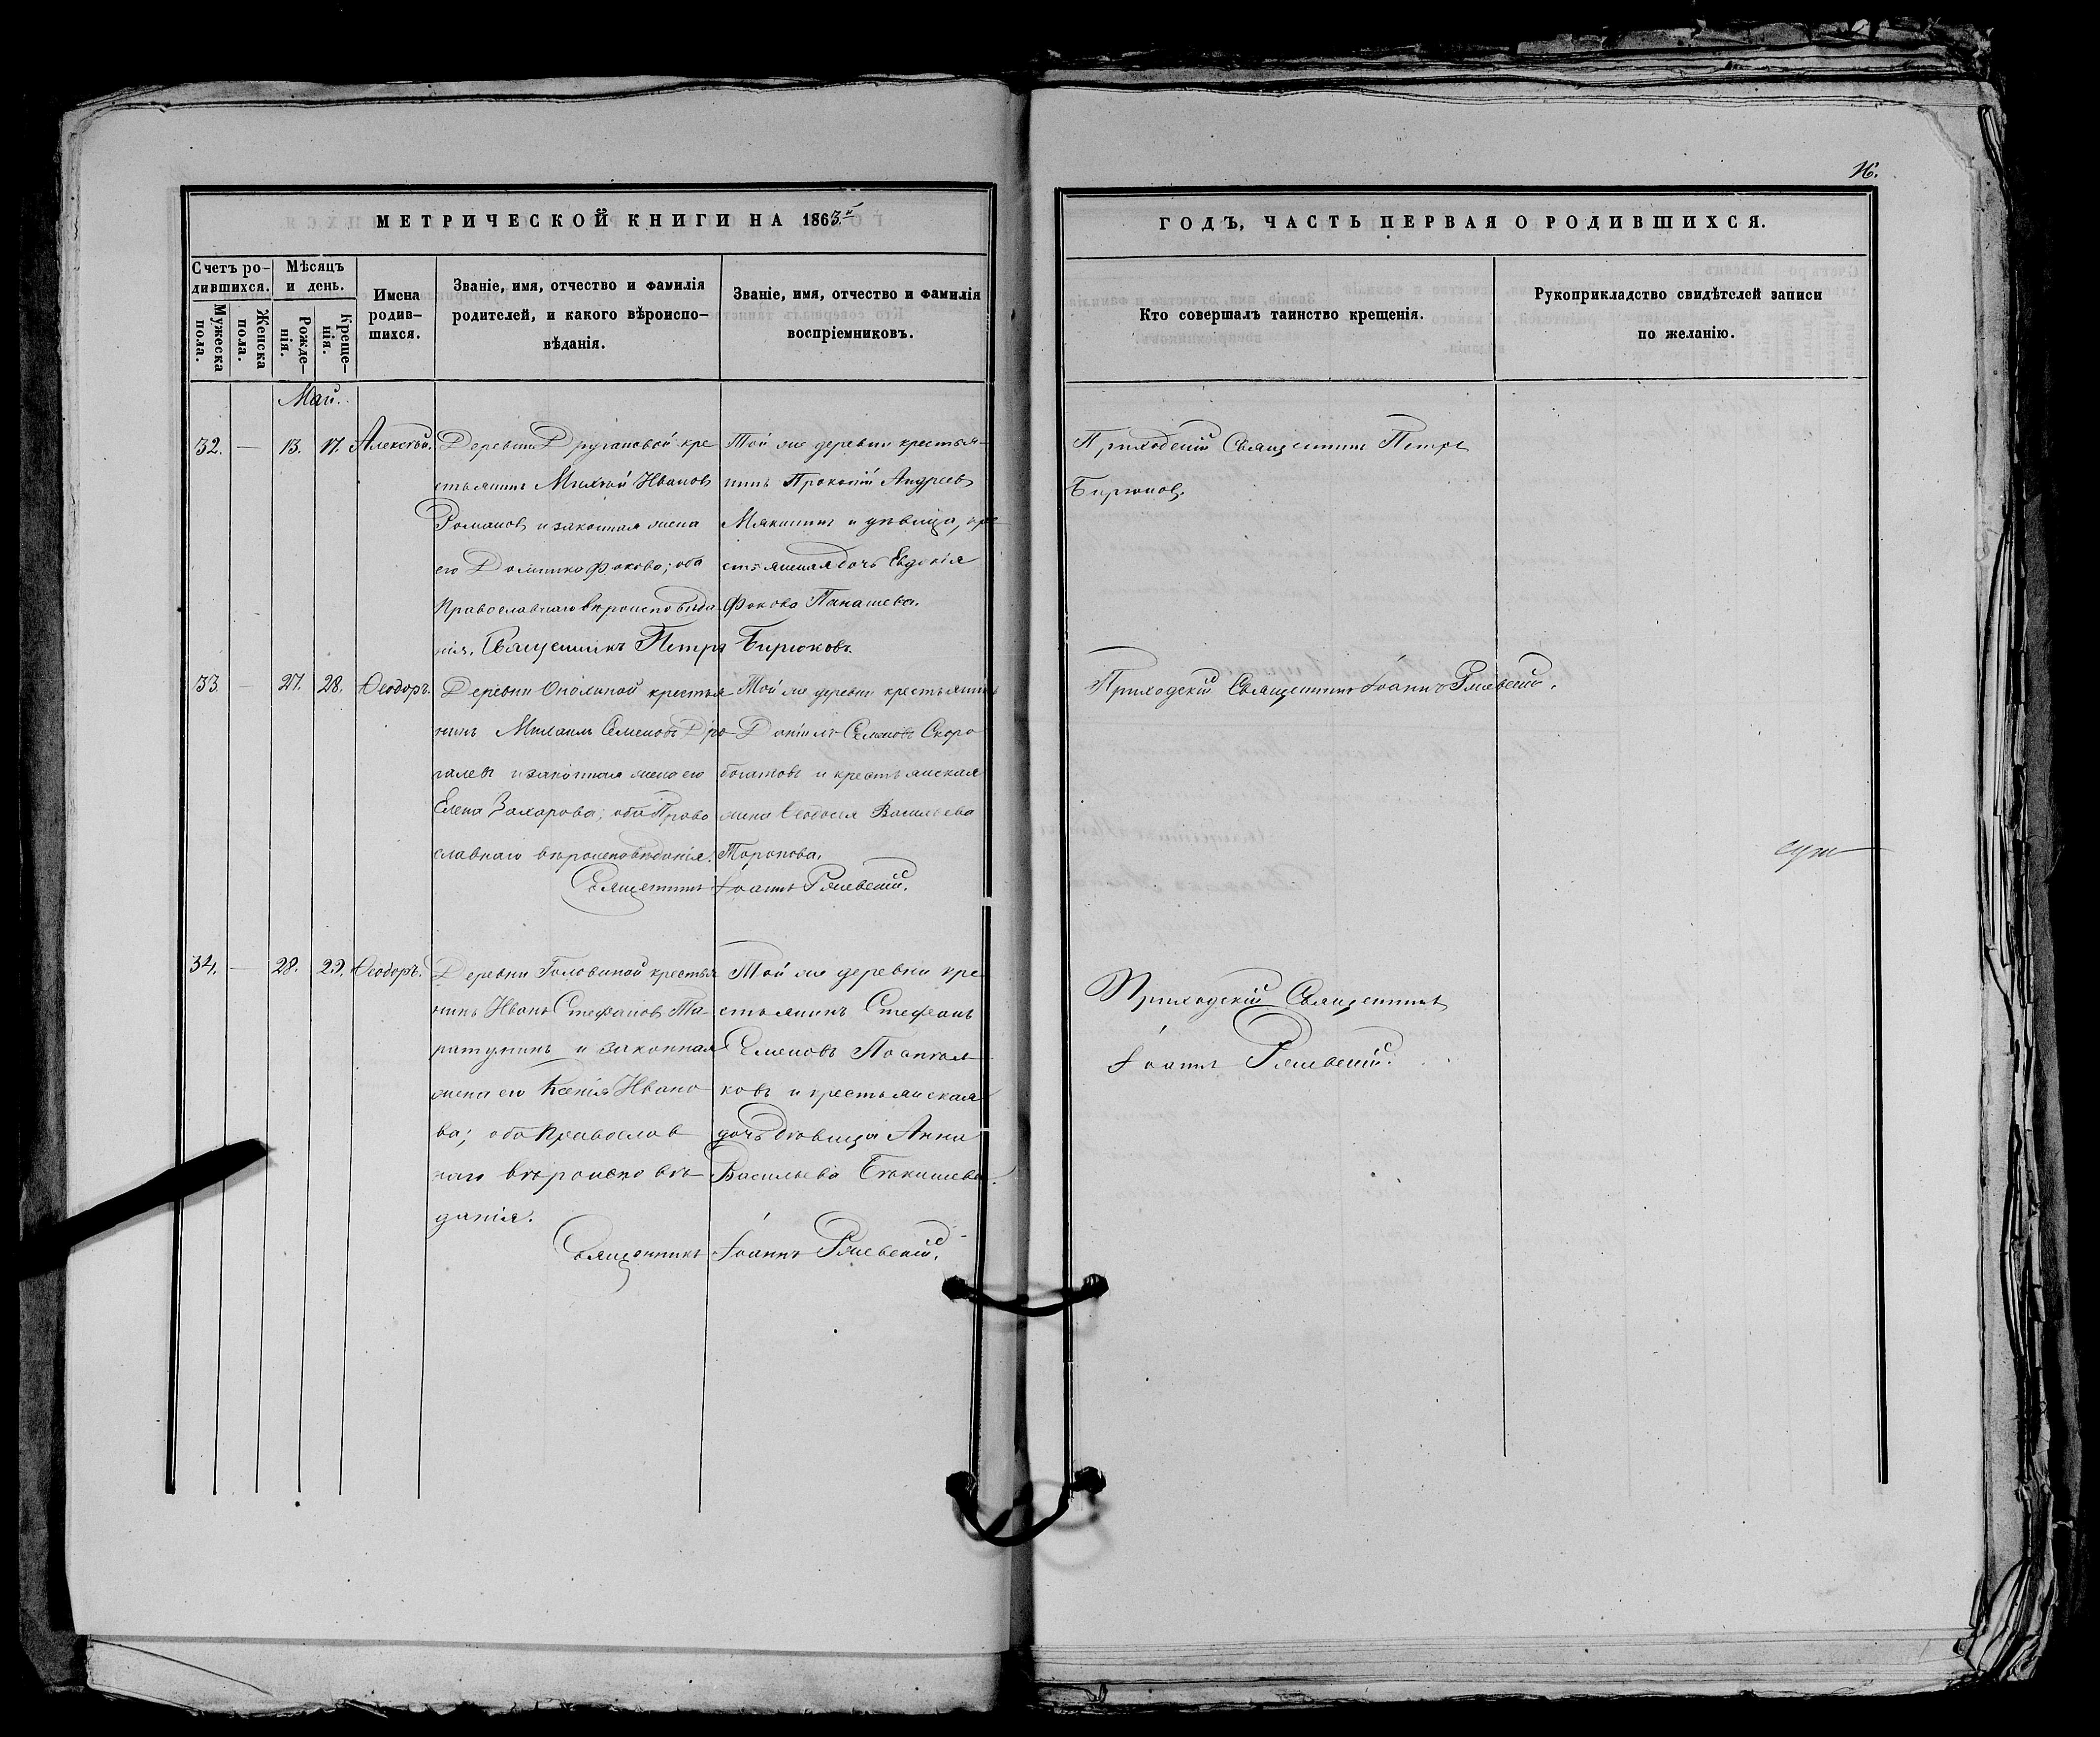 16.
МЕТРИЧЕСКОЙ КНИГИ НА 1863й
ГОДЪ, ЧАСТЬ ПЕРВАЯ О РОДИВШИХСЯ.
Счетъ ро-
дившихся.
Мужеска пола.
Женска пола.
Мѣсяцъ
и день.
Рожде-
нія.
Креще-
нія.
Имена
родив-
шихся.
Званіе, имя, отчество и фамилія
родителей, и какого вѣроиспо-
вѣданія.
Званіе, имя, отчество и фамилія
воспріемниковъ.
Кто совершалъ таинство крещенія.
Рукоприкладство свидѣтелей записи
по желанію.
Маій.
32. — 13. 17. Алексѣй.
Деревни Другановой кре
стьянинъ Михѣй Ивановъ
Романовъ и законная жена
его Домника Фокова; оба
Православнаго вѣроисповѣда
нія. Священникъ Петръ Бирюковъ.
Той же деревни крестья-
нинъ Прокопій Андреевъ
Мякишинъ и дѣвица, кре
стьянская дочь Евдокія
Фокова Панашева.
Приходскій Священникъ Петръ
Бирюковъ.
33. — 27. 28. Ѳеодоръ.
Деревни крестья
нинъ Михаилъ Семеновъ
и законная жена его
Елена Захарова; оба Право
славнаго вѣроисповѣданія.
Той же деревни крестьянинъ
Даніилъ Семеновъ Скоро
богатовъ и крестьянская
жена Ѳеодосія Васильева
Торопова.
Священникъ Іоаннъ Ряжевскій.
Приходскій Священникъ Іоаннъ Ряжевскій.
34. — 28. 29. Ѳеодоръ.
Деревни Головиной крестья
нинъ Иванъ Стефановъ Та-
ратунинъ и законная
жена его Ксенія Ивано
ва; оба Православ
наго вѣроисповѣ-
данія.
Той же деревни кре
стьянинъ Стефанъ
Семеновъ
ковъ и крестьянская
дочь дѣвица Анна
Васильева Бякишева.
Священникъ Іоаннъ Ряжевскій.
Приходскій Священникъ
Іоаннъ Ряжевскій.